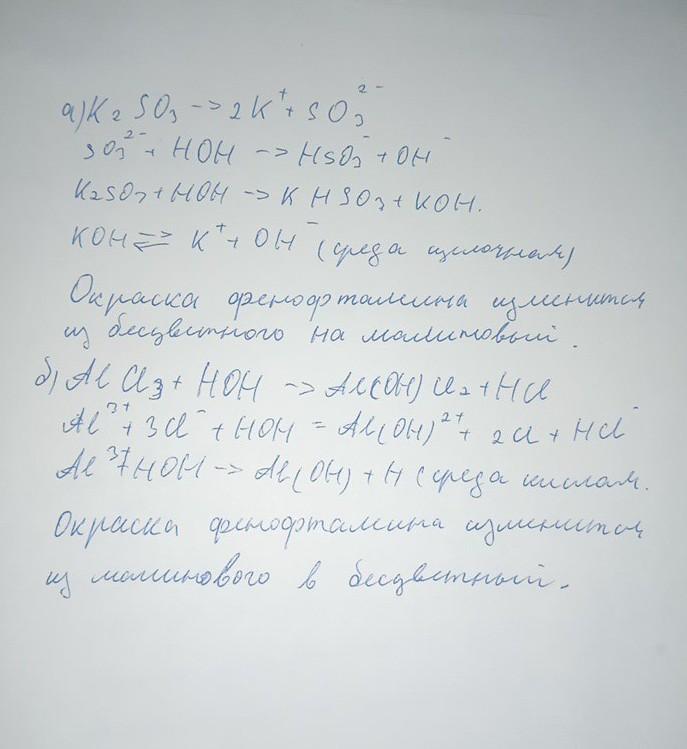 а) K₂SO₃ -> 2K⁺ + SO₃²⁻
SO₃²⁻ + HOH -> HSO₃⁻ + OH⁻
K₂SO₃ + HOH -> KHSO₃ + KOH.
KOH ⇄ K⁺ + OH⁻ (среда щелочная)
Окраска фенофталиина изменится
из бесцветного на малиновый.
б) AlCl₃ + HOH -> Al(OH)Cl₂ + HCl
Al³⁺ + 3Cl⁻ + HOH = Al(OH)²⁺ + 2Cl + HCl⁻
Al³⁺ + HOH -> Al(OH) + H (среда кислая.
Окраска фенофталиина изменится
из малинового в бесцветный.